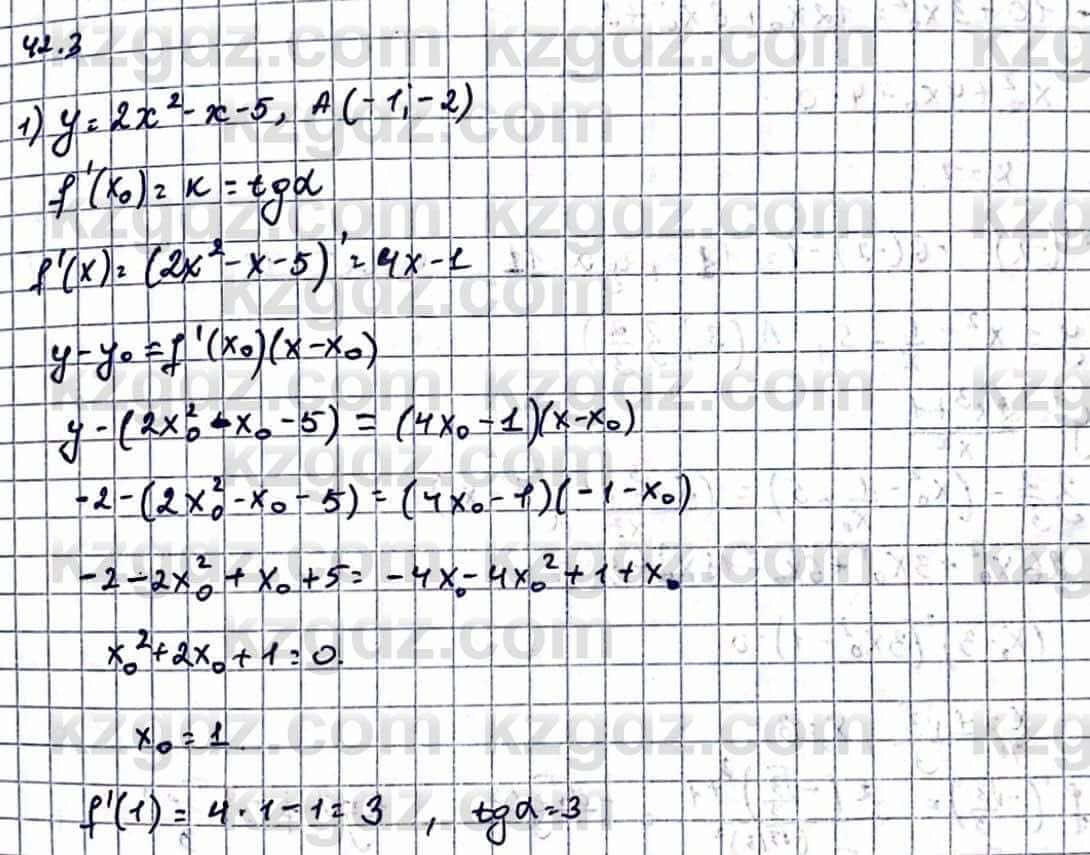 42.3
1) y = 2x² - x - 5, A (-1; -2)
f'(x₀) = k = tgα
f'(x) = (2x² - x - 5)' = 4x - 1
y - y₀ = f'(x₀)(x - x₀)
y - (2x₀² - x₀ - 5) = (4x₀ - 1)(x - x₀)
-2 - (2x₀² - x₀ - 5) = (4x₀ - 1)(-1 - x₀)
-2 - 2x₀² + x₀ + 5 = -4x₀ - 4x₀² + 1 + x₀
x₀² + 2x₀ + 1 = 0.
x₀ = 1
f'(1) = 4 · 1 - 1 = 3 , tgα = 3
kzgdz.com